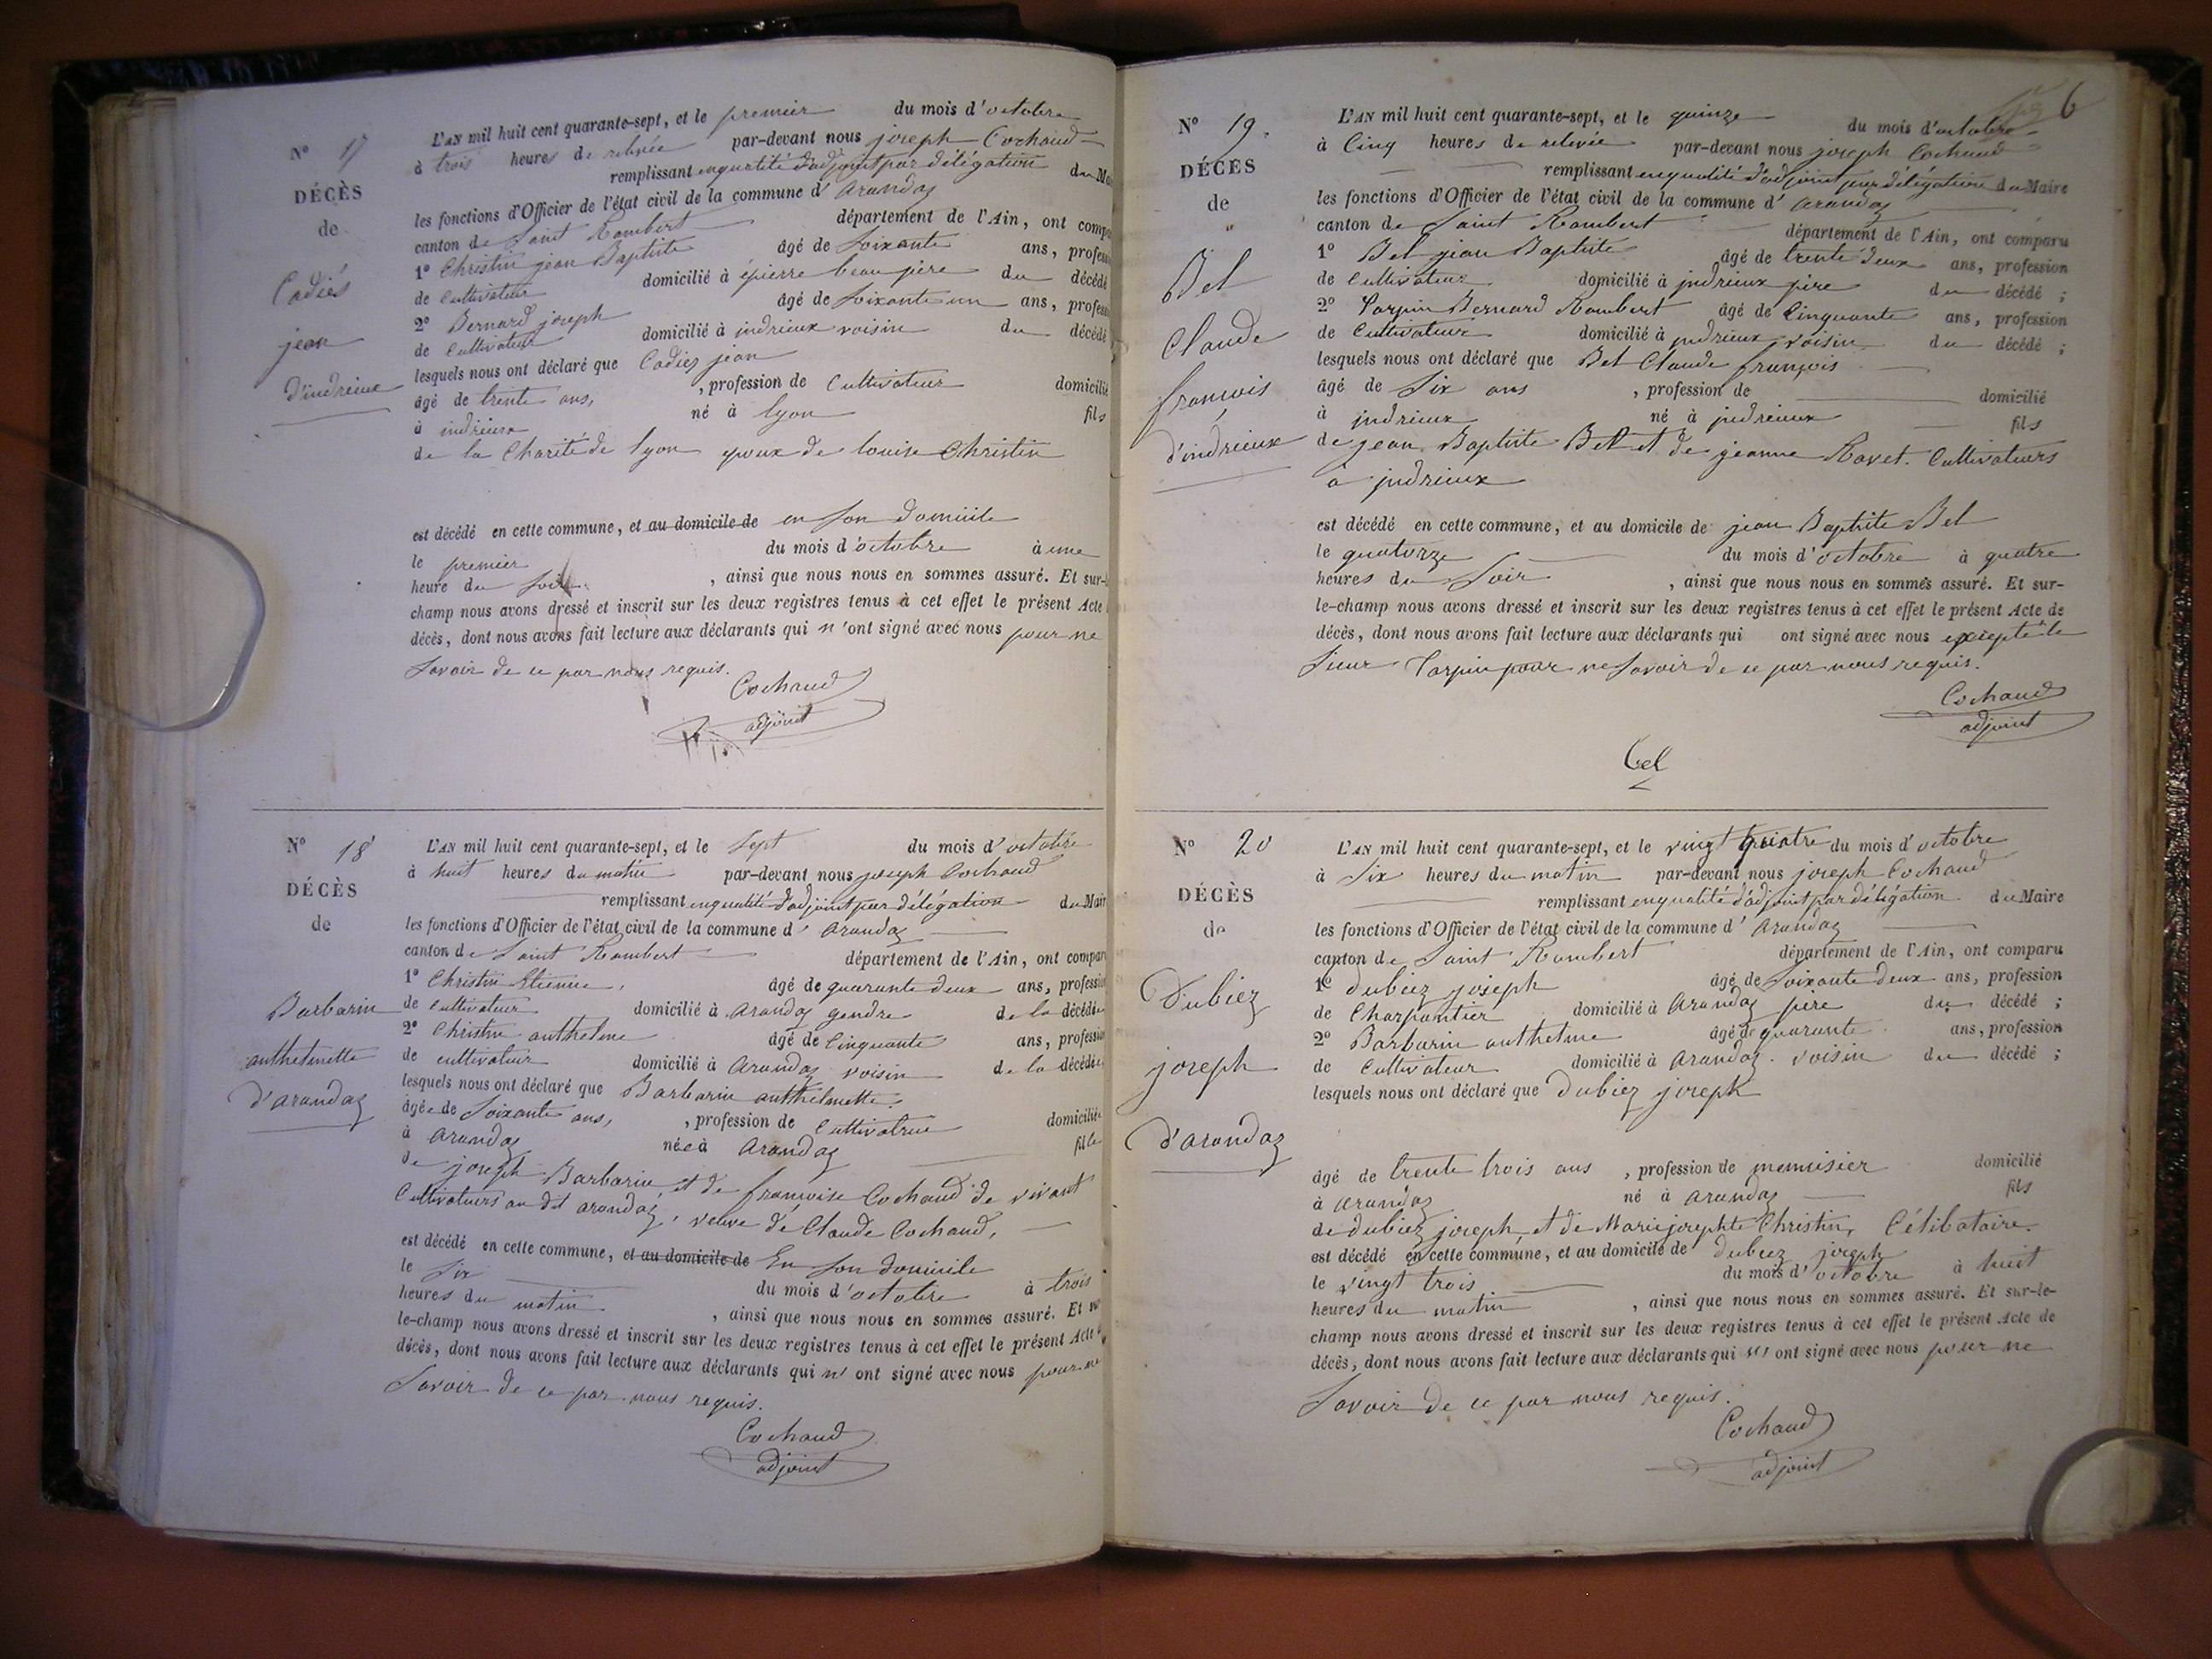 N° 17
DÉCÈS
de
Cadiés
jean
d'indrieux
L'AN mil huit cent quarante-sept, et le premier du mois d'octobre
à trois heures de relevée par-devant nous joseph Cochaud
remplissant enqualité d'adjoint par délégation du Ma
les fonctions d'Officier de l'état civil de la commune d'arandaz
canton de Saint Rambert département de l'Ain, ont compa
1° Christin jean Baptiste âgé de Soixante ans, profess
de cultivateur domicilié à épierre beau père du décédé
2° Bernard joseph âgé de Soixante un ans, profess
de Cultivateur domicilié à indrieux voisin du décédé
lesquels nous ont déclaré que Cadiez jean
âgé de trente ans, , profession de Cultivateur domicilié
à indrieux né à lyon fils
de la Charité de lyon epoux de louise Christin
est décédé en cette commune, et au domicile de en Son domicile
le premier du mois d'octobre à une
heure du Soir , ainsi que nous nous en sommes assuré. Et sur-
champ nous avons dressé et inscrit sur les deux registres tenus à cet effet le présent Acte
décès, dont nous avons fait lecture aux déclarants qui n'ont signé avec nous pour ne
Savoir de ce par nous requis.
Cochaud
adjoint
N° 18
DÉCÈS
de
Barbarin
anthelmette
d'arandaz
L'AN mil huit cent quarante-sept, et le Sept du mois d'octobre
à huit heures du matin par-devant nous joseph Cochaud
remplissant enqualité d'adjoint par délégation du Mair
les fonctions d'Officier de l'état civil de la commune d'arandaz
canton de Saint Rambert département de l'Ain, ont compar
1° Christin Etienne, âgé de quarante deux ans, professio
de cultivateur domicilié à arandaz gendre de la décédée
2° Christin anthelme âgé de Cinquante ans, professio
de cultivateur domicilié à Arandaz voisin de la décédée
lesquels nous ont déclaré que Barbarin anthelmette.
âgée de Soixante ans, , profession de Cultivatrice domiciliée
à arandaz née à arandaz fille
de joseph Barbarin et de françoise Cochaud de vivant
Cultivateurs au dit arandaz, veuve de Claude Cochaud,
est décédé en cette commune, et au domicile de En Son domicile
le Six du mois d'octobre à trois
heures du matin , ainsi que nous nous en sommes assuré. Et sur
le-champ nous avons dressé et inscrit sur les deux registres tenus à cet effet le présent Acte
décès, dont nous avons fait lecture aux déclarants qui n'ont signé avec nous pour ne
Savoir de ce par nous requis.
Cochaud
adjoint
6
N° 19.
DÉCÈS
de
Bel
Claude
françois
d'indrieux
L'AN mil huit cent quarante-sept, et le quinze du mois d'octobre
à Cinq heures de relevée par-devant nous joseph Cochaud
remplissant enqualité d'adjoint par délégation du Maire
les fonctions d'Officier de l'état civil de la commune d'arandaz
canton de Saint Rambert département de l'Ain, ont comparu
1° Bel jean Baptiste âgé de trente deux ans, profession
de Cultivateur domicilié à indrieux père du décédé ;
2° Tarpin Bernard Rambert âgé de Cinquante ans, profession
de Cultivateur domicilié à indrieux voisin du décédé ;
lesquels nous ont déclaré que Bel Claude françois
âgé de Six ans , profession de domicilié
à indrieux né à indrieux fils
de jean Baptiste Bel et de jeanne Ravet. Cultivateurs
à indrieux
est décédé en cette commune, et au domicile de jean Baptiste Bel
le quatorze du mois d'octobre à quatre
heures du Soir , ainsi que nous nous en sommes assuré. Et sur-
le-champ nous avons dressé et inscrit sur les deux registres tenus à cet effet le présent Acte de
décès, dont nous avons fait lecture aux déclarants qui ont signé avec nous excepté le
Sieur Tarpin pour ne Savoir de ce par nous requis.
Cochaud
adjoint
bel
N° 20
DÉCÈS
de
Dubiez
joseph
d'arandaz
L'AN mil huit cent quarante-sept, et le vingt quatre du mois d'octobre
à Six heures du matin par-devant nous joseph Cochaud
remplissant enqualité d'adjoint par délégation du Maire
les fonctions d'Officier de l'état civil de la commune d'Arandaz
canton de Saint Rambert département de l'Ain, ont comparu
1° dubiez joseph âgé de Soixante deux ans, profession
de Charpentier domicilié à Arandaz père du décédé ;
2° Barbarin anthelme âgé de quarante ans, profession
de Cultivateur domicilié à arandaz. voisin du décédé ;
lesquels nous ont déclaré que dubiez joseph
âgé de trente trois ans , profession de menuisier domicilié
à arandaz né à arandaz fils
de dubiez joseph et de Marie josephte Christin, Célibataire.
est décédé en cette commune, et au domicile de dubiez joseph
le vingt trois du mois d'octobre à huit
heures du matin , ainsi que nous nous en sommes assuré. Et sur-le-
champ nous avons dressé et inscrit sur les deux registres tenus à cet effet le présent Acte de
décès, dont nous avons fait lecture aux déclarants qui n'ont signé avec nous pour ne
Savoir de ce par nous requis.
Cochaud
adjoint